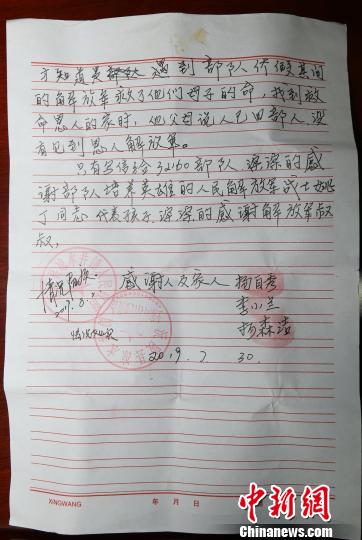 才知道是部队遇到部队休假其间
的解放军救了他们母子的命，找到救
命恩人的家时，他父母说人已回部人，没
有见到恩人解放军。
只有写信给32160部队，深深的感
谢部队培养英雄的人民解放军战士姚
丁同志，代表孩子，深深的感谢解放军叔
叔，
感谢人及家人 杨自秀
情况属实 李小兰
杨森洁
情况属实
2019.7 30.
XINGWANG 年 月 日
中新网
Chinanews.com